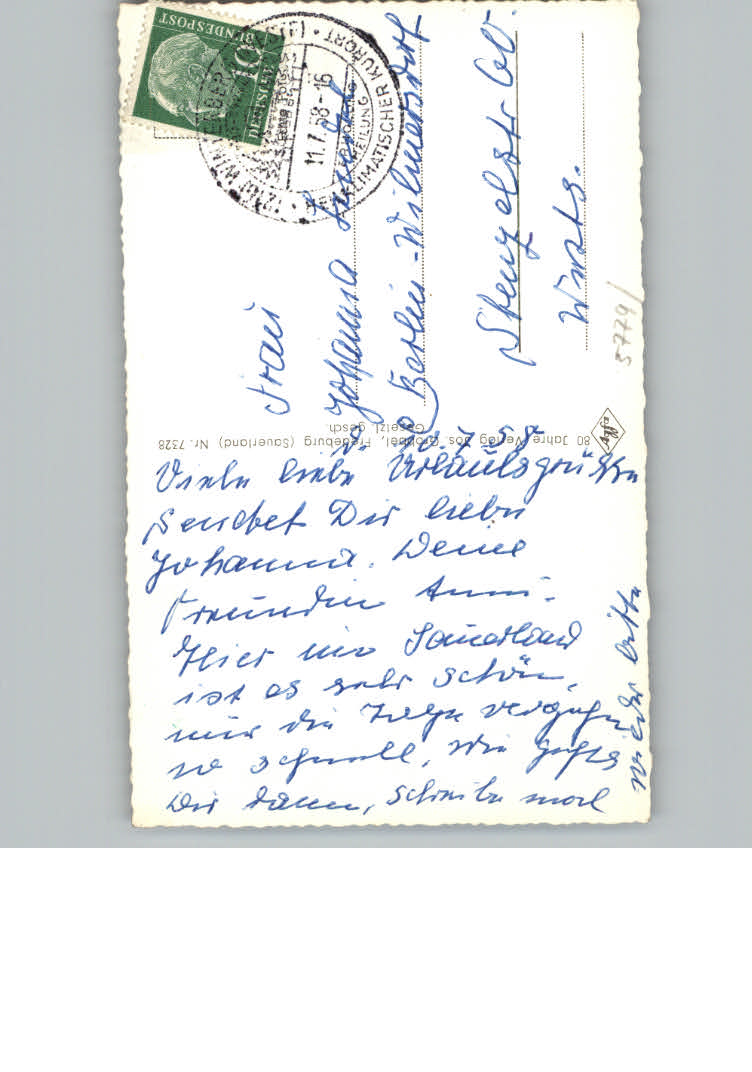 DEUTSCHE
BUNDESPOST
10
11.7.58-16
HEILKLIMATISCHER KURORT
Frau
Johanna
Berlin-Wilmersdorf
Stenzelstr. 60
5779/
80 Jahre Verlag Jos. Grobbel, Fredeburg (Sauerland) Nr. 7328
Gesetzl. gesch.
Viele liebe Urlaubsgrüße
sendet Dir liebe
Johanna. Deine
Freundin Anni.
Hier im Sauerland
ist es sehr schön,
nur die Tage vergehen
so schnell, wie geht es
Dir dann, schreibe mal
wieder bitte